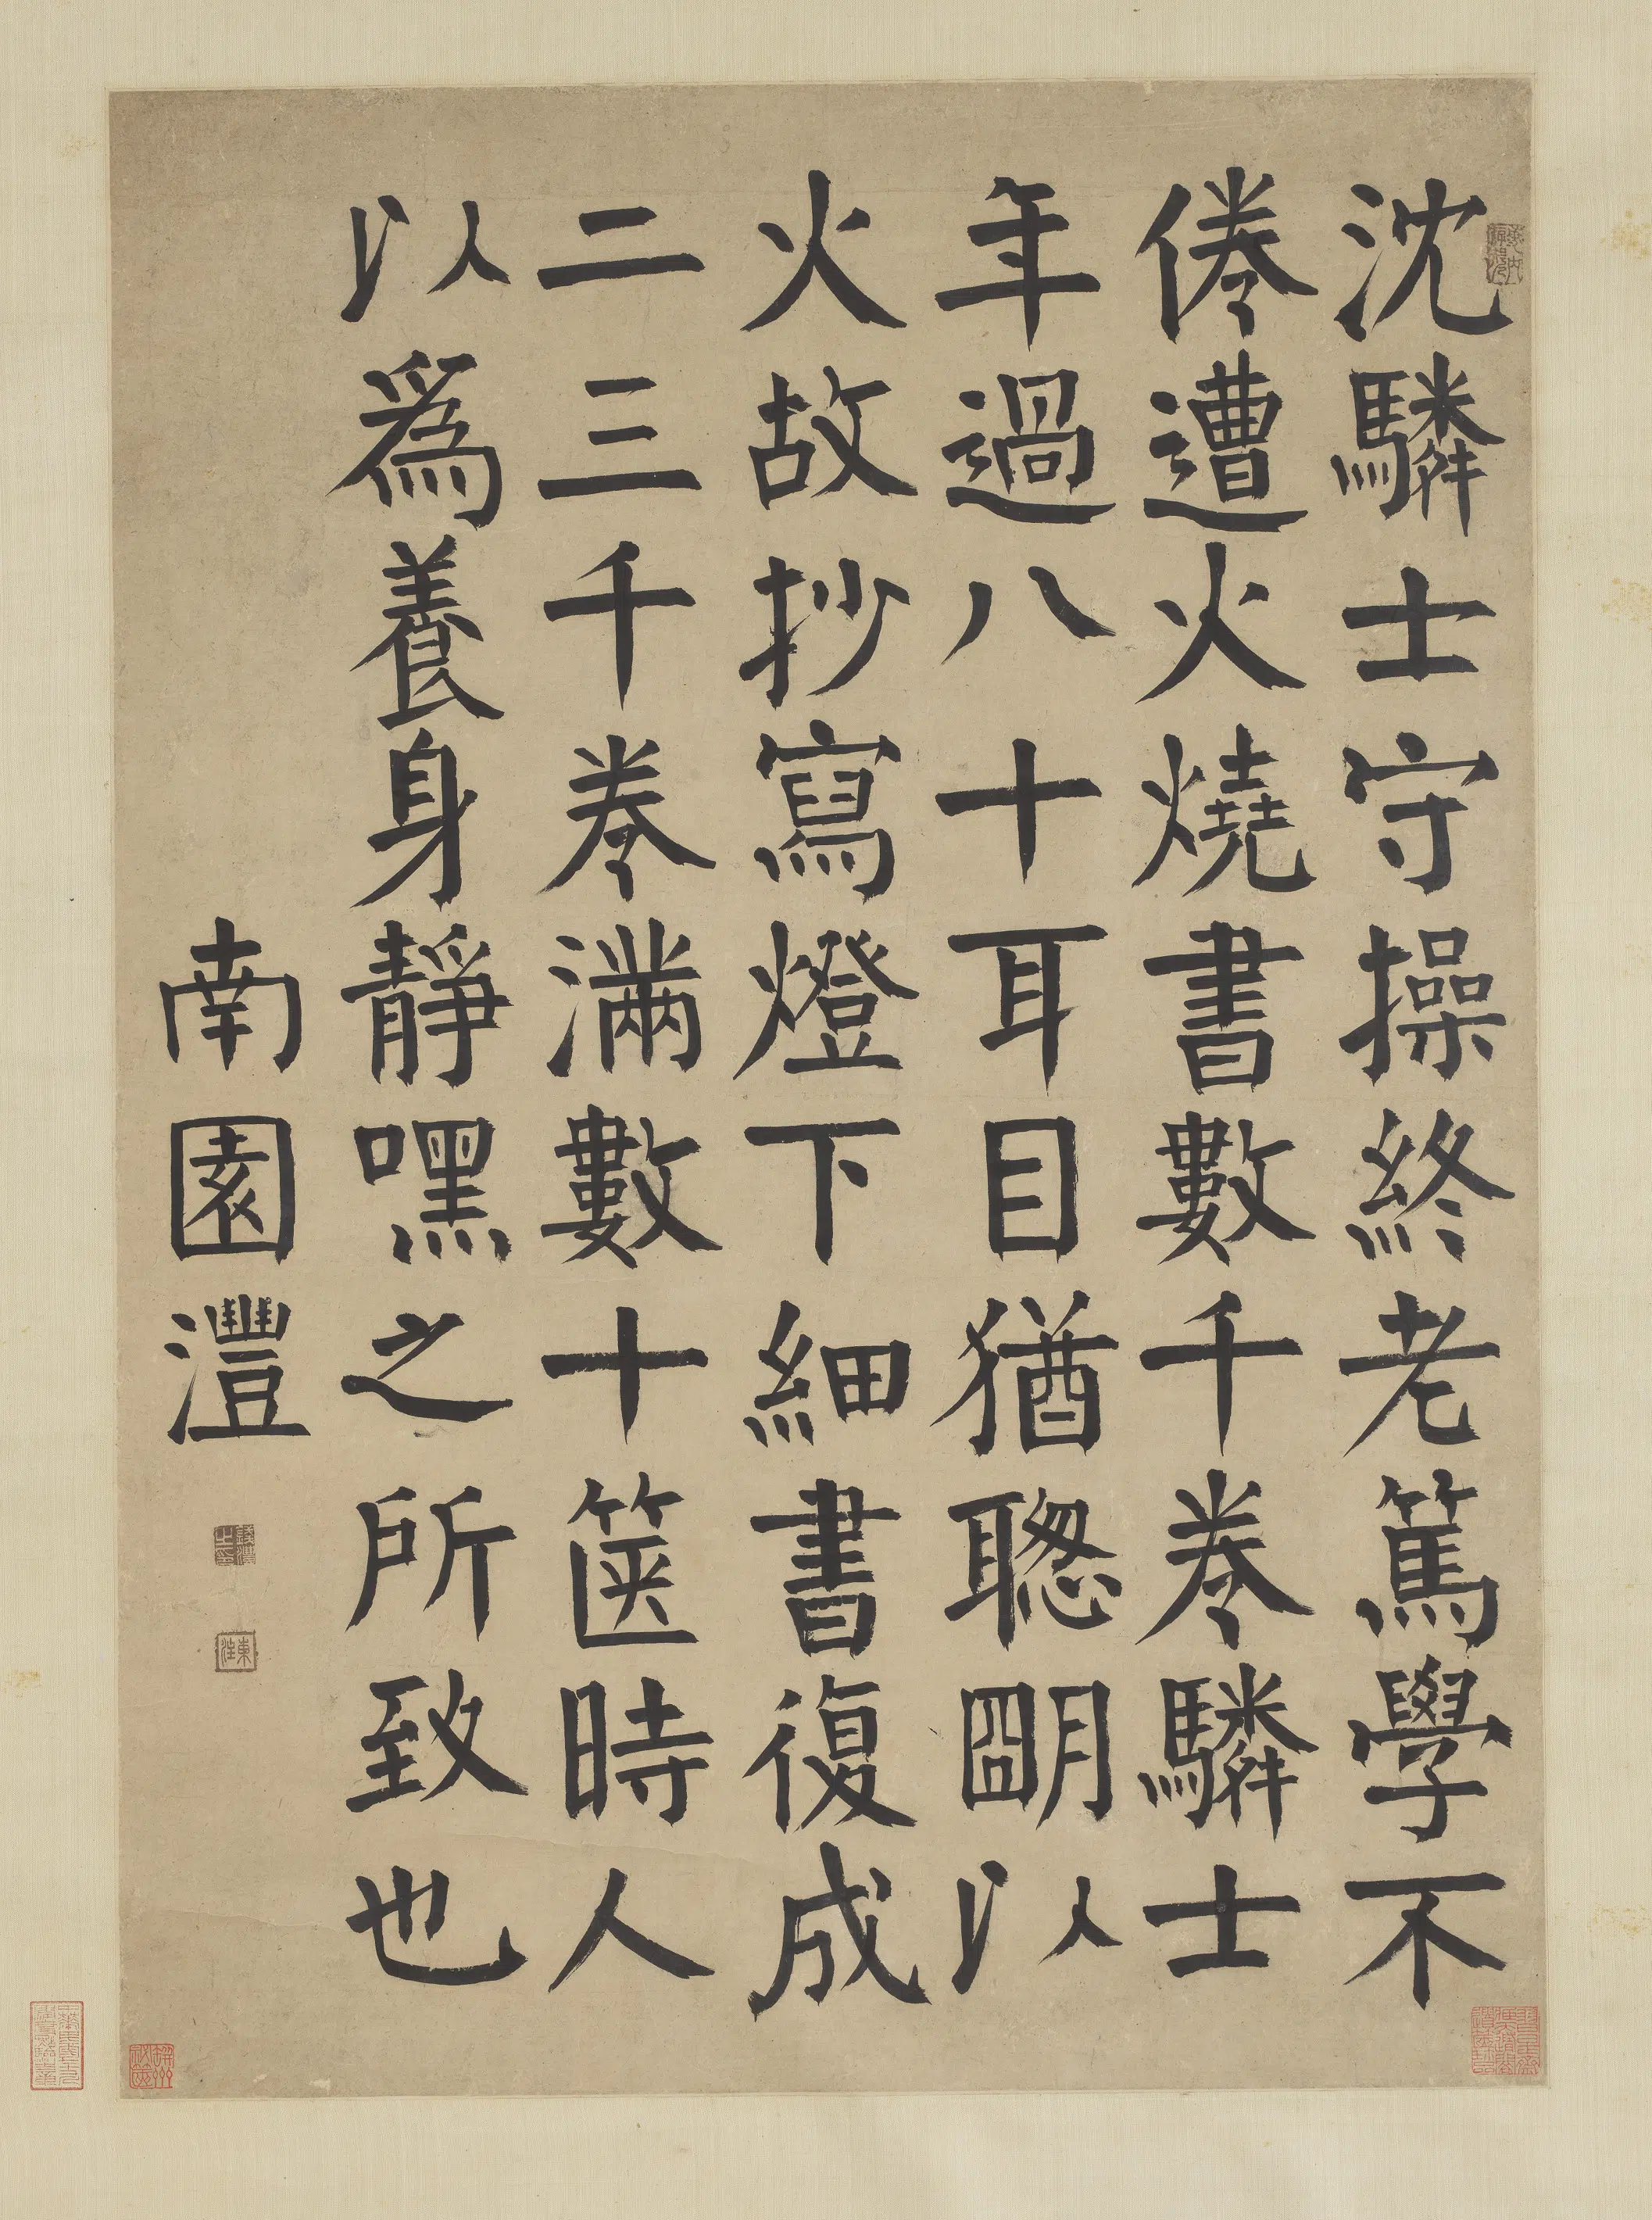 沈驎士守操終老篤學不
倦遭火燒書數千卷驎士
年過八十耳目猶聦朙以
火故抄寫燈下細書復成
二三千卷滿數十篋時人
以為養身靜嘿之所致也
南園灃
錢灃之印
東注